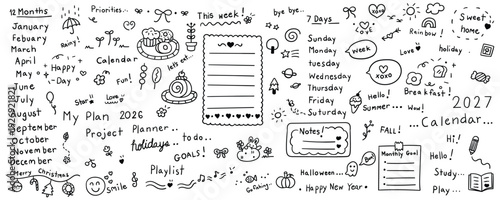 12 Months
January
Febuary
March
April
May
June
July
August
September
October
November
December
Merry Christmas
Rainy!
Happy
Day
Star
Love
Priorities...
Calendar
Fun!
My Plan 2026
Project Planner...
holidays...
to do...
GOALS!
Playlist
Smile
let's eat...
This week!
bye bye...
7 Days
Sunday
Monday
tuesday
Wednesday
Thursday
Friday
Saturday
Notes!
Go fishing...
Halloween...
Happy New Year
LOVE
Week
xoxo
Hello!
Summer...
Wow!
FALL!
Boo!
Monthly Goal
Rainbow!
Love
holiday
Breakfast!
Sweet
home
2027
Calendar...
Hi!
Hello!
Study...
Play...